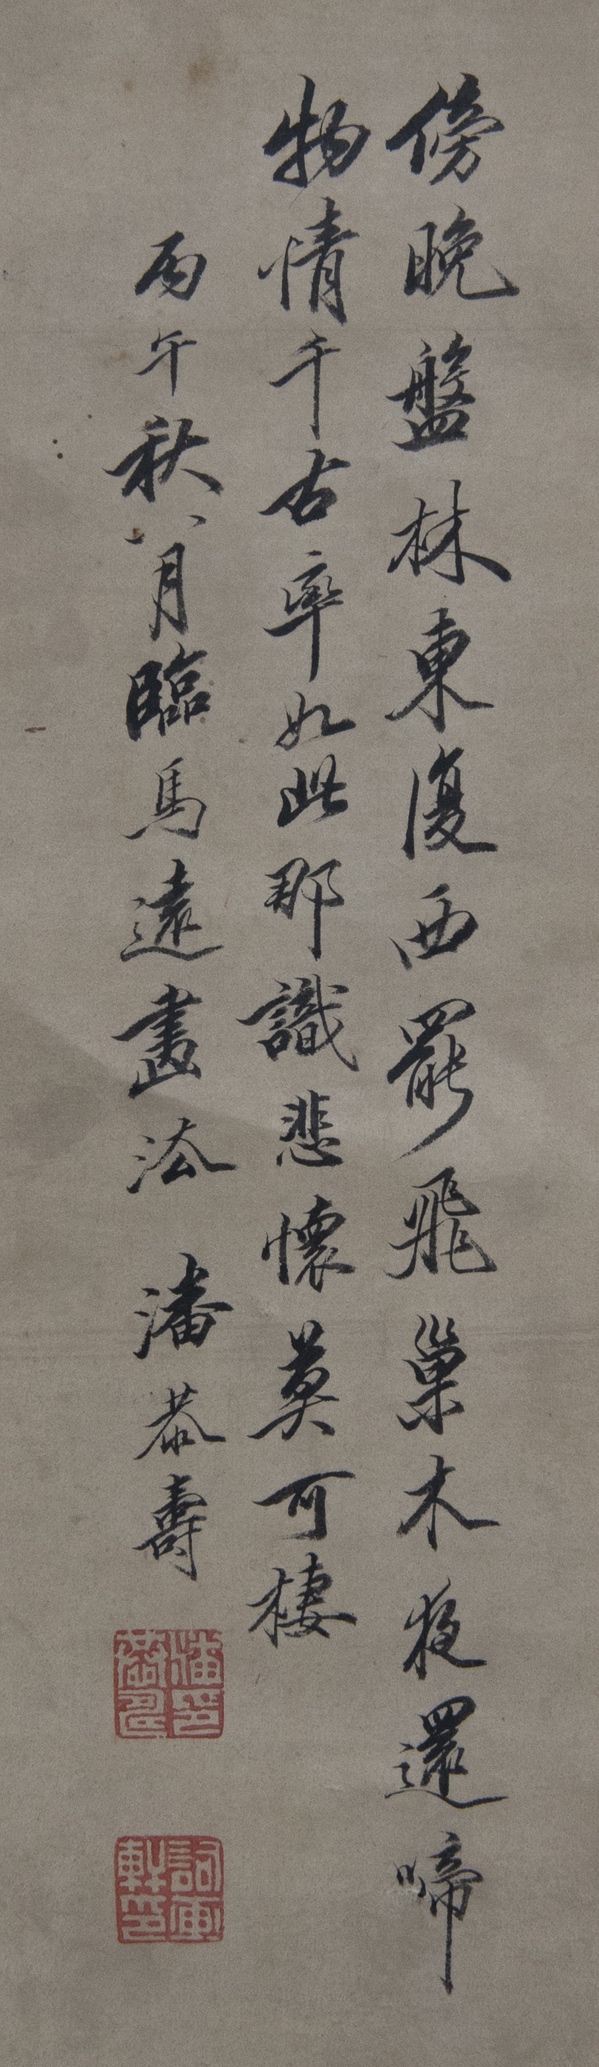 傍晚盤林東復西罷飛巢木夜還啼
物情千古率如此那識悲懷莫可棲
丙午秋八月臨馬遠畫法 潘恭壽